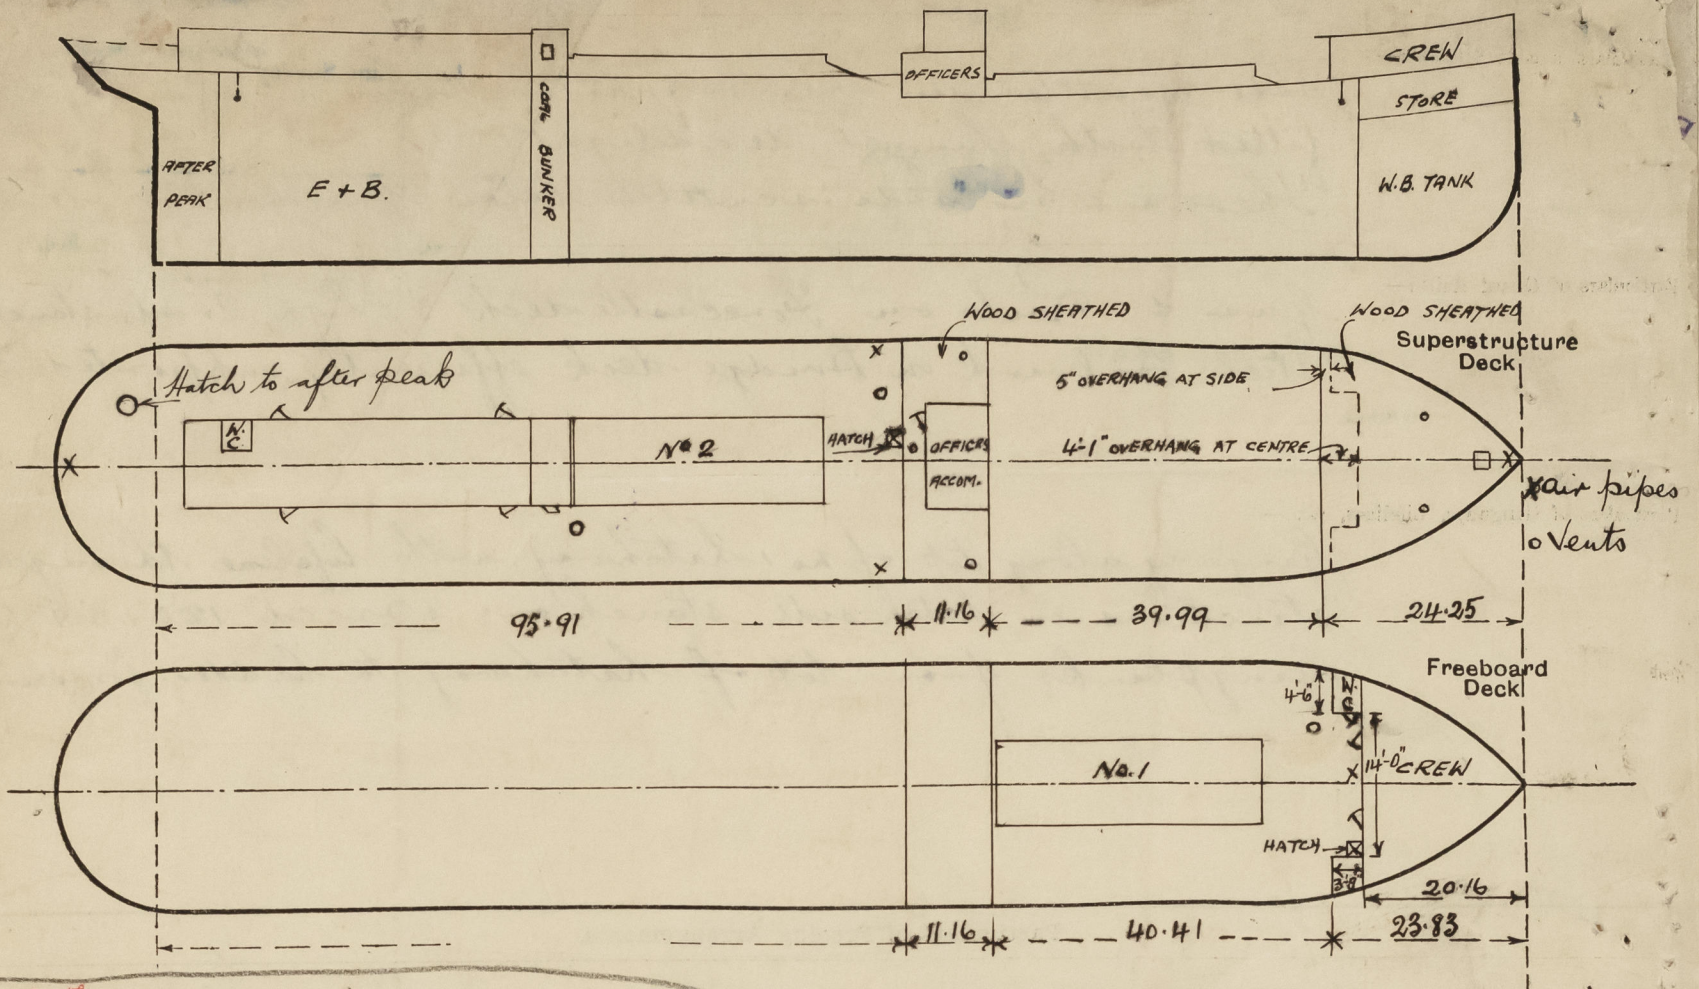 CREW
OFFICERS
STORE
COAL BUNKER
AFTER
PEAK
E + B.
W.B. TANK
WOOD SHEATHED
WOOD SHEATHED
Superstructure
Deck
Hatch to after peak
5" OVERHANG AT SIDE
W.
C.
No 2
HATCH
OFFICERS
ACCOM.
4'-1" OVERHANG AT CENTRE
X air pipes
o Vents
95.91
11.16
39.99
24.25
Freeboard
Deck
4'-6"
W.
C
No. 1
14'-0"
CREW
HATCH
3'-8"
20.16
11.16
40.41
23.83